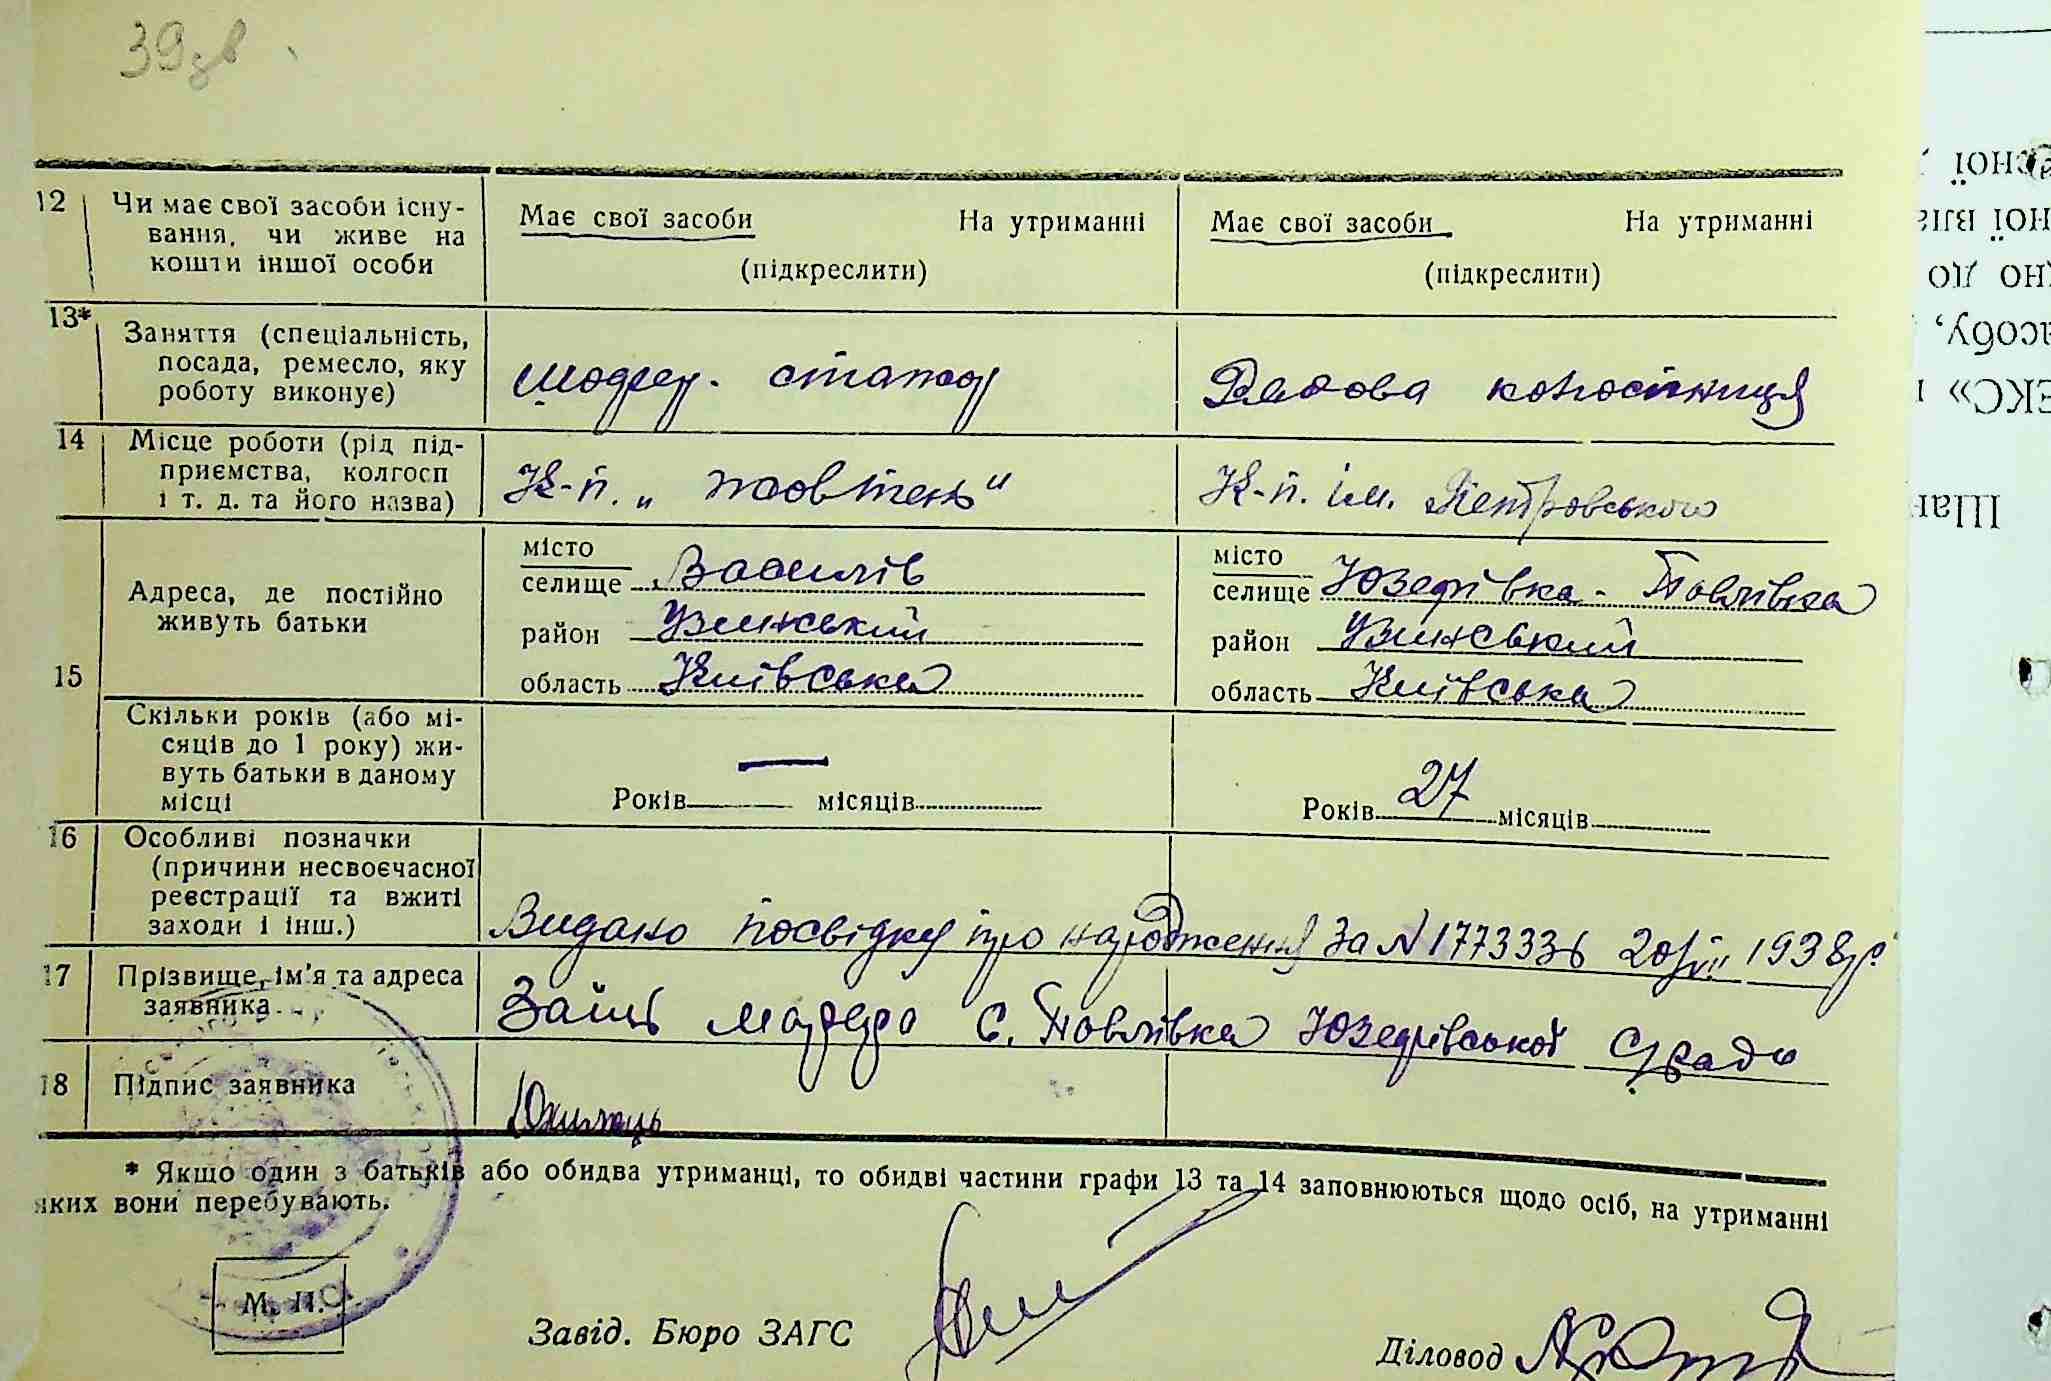 39зв
12 Чи має свої засоби існу-
вання, чи живе на
кошти іншої особи
Має свої засоби На утриманні
(підкреслити)
Має свої засоби На утриманні
(підкреслити)
13* Заняття (спеціальність,
посада, ремесло, яку
роботу виконує)
Рядова колгоспниця
14 Місце роботи (рід під-
приємства, колгосп
і т. д. та його назва)
К-п. „Жовтень"
К-п. ім. Петровського
15 Адреса, де постійно
живуть батьки
місто
селище Василів
район Узинський
область Київська
місто
селище Юзефівка - Павлівка
район Узинський
область Київська
Скільки років (або мі-
сяців до 1 року) жи-
вуть батьки в даному
місці
Років — місяців
Років 27 місяців
16 Особливі позначки
(причини несвоєчасної
реєстрації та вжиті
заходи і інш.)
Видано посвідку про народження за N 1773336 20/VII 1938 р.
17 Прізвище, ім'я та адреса
заявника
с. Павлівка Юзефівської с/ради
18 Підпис заявника
* Якщо один з батьків або обидва утриманці, то обидві частини графи 13 та 14 заповнюються щодо осіб, на утриманні
яких вони перебувають.
М. П.
Завід. Бюро ЗАГС
Діловод